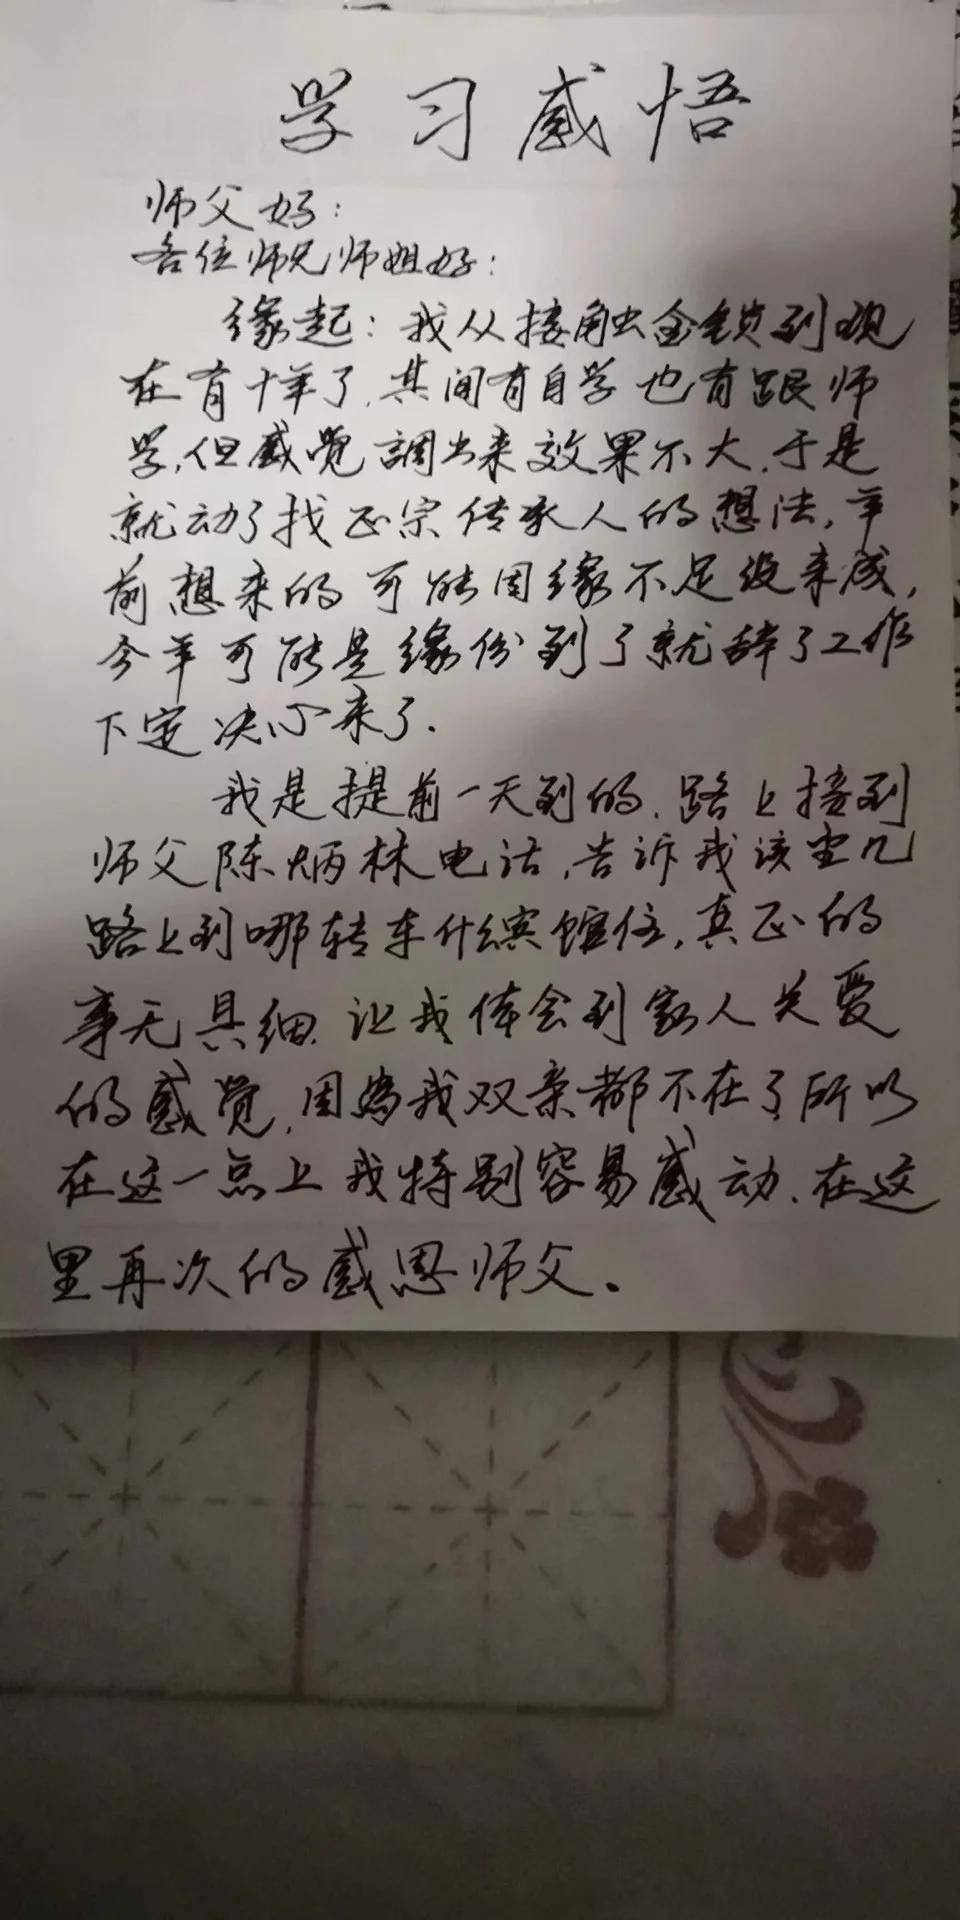 学习感悟
师父好：
各位师兄师姐好：
缘起：我从接触金锁到现
在有十年了.其间有自学也有跟师
学,但感觉調出来效果不大,于是
就动了找正宗传承人的想法,年
前想来的可能因缘不足没来成,
今年可能是缘份到了就辞了工作
下定决心来了.
我是提前一天到的,路上接到
师父陈炳林电话,告诉我该坐几
路上到哪转车什么宾馆住,真正的
事无具细.让我体会到家人关爱
的感觉,因為我双亲都不在了所以
在这一点上我特别容易感动.在这
里再次的感恩师父。